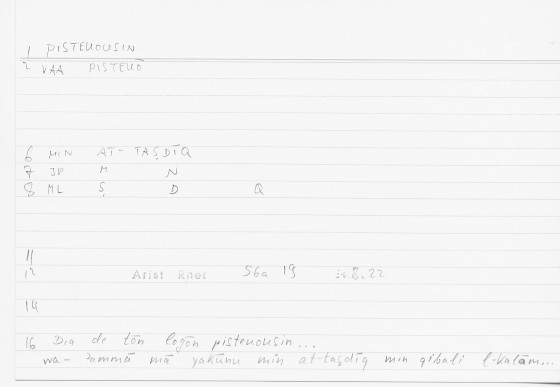 1 PISTEUOUSIN
2 VAA PISTEUŌ
6 MIN AT-TAṢDĪQ
7 JP M N
8 ML Ṣ D Q
11
12 Arist Rhet 56a 19 8.22
14
16 Dia de tōn logōn pisteuousin...
wa-ʾammā mā yakūnu min at-taṣdīq min qibali l-kalām...